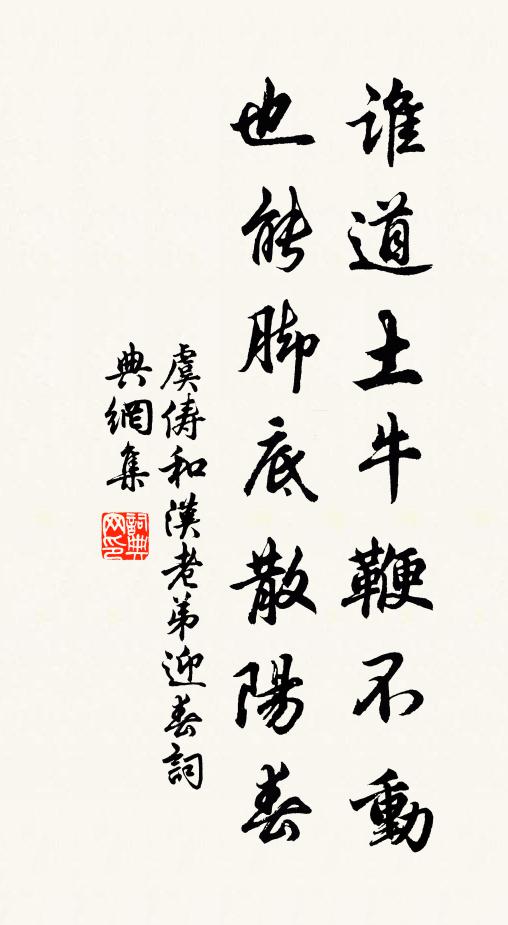 誰道土牛鞭不動
也能脚底散陽春
虞儔和漢老弟迎春詞
典網集
詞典網印